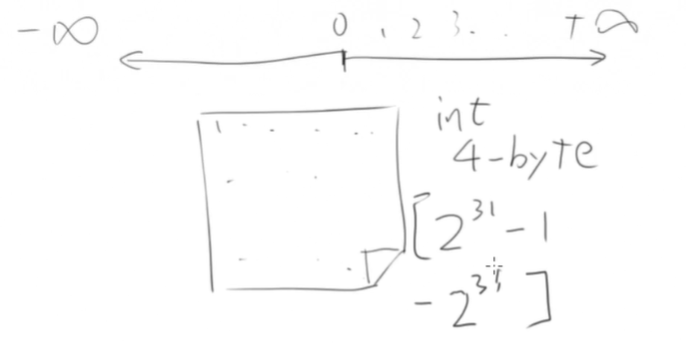 -∞ 0 . 2 3 . . +∞
int
4-byte
[2^31 - 1
-2^31 ]